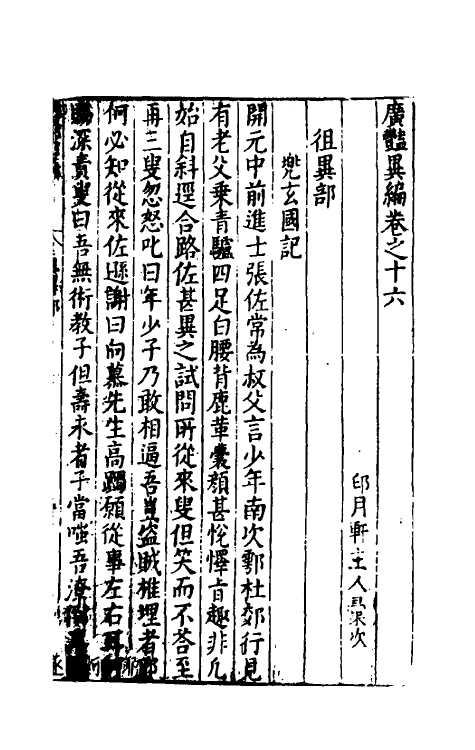 廣豔異編卷之十六
印月軒主人彙次
徂異部
兠玄國記
開元中前進士張佐常為叔父言少年南次鄠杜郊行見
有老父乗青驢四足白腰背鹿革囊顔甚恱懌㫖趣非凡
始自斜逕合路佐甚異之試問所從來叟但笑而不荅至
再三叟忽怒叱曰年少子乃敢相逼吾豈盗賊椎埋者耶
何必知從來佐遜謝曰向慕先生高躅願從事左右耳何
深責叟曰吾無術教子但壽永者子當嗤吾潦